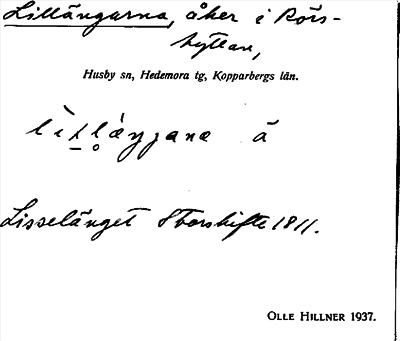 Lillängarna, åker i Rörs-
hyttan,
Husby sn, Hedemora tg, Kopparbergs län.
Lisselänget Storskifte 1811.
OLLE HILLNER 1937.